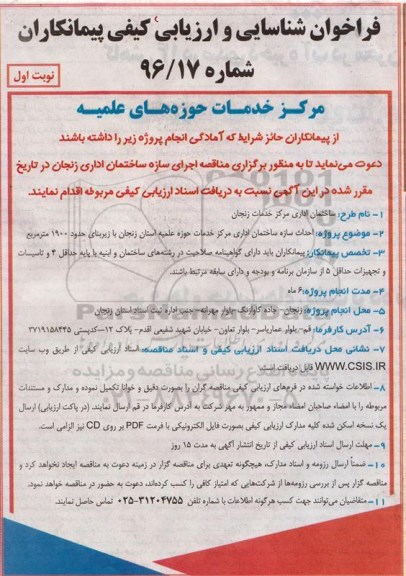 فراخوان شناسایی و ارزیابی کیفی پیمانکاران
شماره ۹۶/۱۷
نوبت اول
مرکز خدمات حوزه‌های علمیه
از پیمانکاران حائز شرایط که آمادگی انجام پروژه زیر را داشته باشند
دعوت می‌نماید تا به منظور برگزاری مناقصه اجرای سازه ساختمان اداری زنجان در تاریخ
مقرر شده در این آگهی نسبت به دریافت اسناد ارزیابی کیفی مربوطه اقدام نمایند.
۱- نام طرح: ساختمان اداری مرکز خدمات زنجان
۲- موضوع پروژه: احداث سازه ساختمان اداری مرکز خدمات حوزه علمیه استان زنجان با زیربنای حدود ۱۹۰۰ مترمربع
۳- تخصص پیمانکار: پیمانکاران باید دارای گواهینامه صلاحیت در رشته‌های ساختمان و ابنیه با پایه حداقل ۴ و تاسیسات
و تجهیزات حداقل ۵ از سازمان برنامه و بودجه و دارای سابقه مرتبط باشند.
۴- مدت انجام پروژه: ۶ ماه
۵- محل انجام پروژه: زنجان- جاده گاوازنگ- بلوار مهرانه- جنب اداره ثبت اسناد استان زنجان
۶- آدرس کارفرما: قم- بلوار عماریاسر- بلوار تعاون- خیابان شهید شفیعی اقدم- پلاک ۱۲- کدپستی ۳۷۱۹۱۵۸۴۴۵
۷- نشانی محل دریافت اسناد ارزیابی کیفی و اسناد مناقصه: اسناد ارزیابی کیفی از طریق وب سایت
WWW.CSIS.IR قابل دریافت است.
۸- اطلاعات خواسته شده در فرم‌های ارزیابی کیفی مناقصه گران را بصورت دقیق و خوانا تکمیل نموده و مدارک و مستندات
مربوطه را با امضاء صاحبان امضاء مجاز و ممهور به مهر شرکت به آدرس کارفرما در قم ارسال نمایند. (در پاکت ارزیابی) ارسال
یک نسخه اسکن شده کلیه مدارک ارزیابی کیفی بصورت فایل الکترونیکی با فرمت PDF بر روی CD نیز الزامی است.
۹- مهلت ارسال اسناد ارزیابی کیفی از تاریخ انتشار آگهی به مدت ۱۵ روز
۱۰- ضمناً ارسال رزومه و اسناد مدارک، هیچگونه تعهدی برای مناقصه گزار در زمینه دعوت به مناقصه ایجاد نخواهد کرد و
مناقصه گزار پس از بررسی رزومه‌ها از شرکت‌هایی که امتیاز کافی را کسب کرده‌اند، دعوت به حضور در مناقصه خواهد نمود.
۱۱- متقاضیان می‌توانند جهت کسب هرگونه اطلاعات با شماره تلفن ۳۱۲۰۴۷۵۵-۰۲۵ تماس حاصل نمایند.